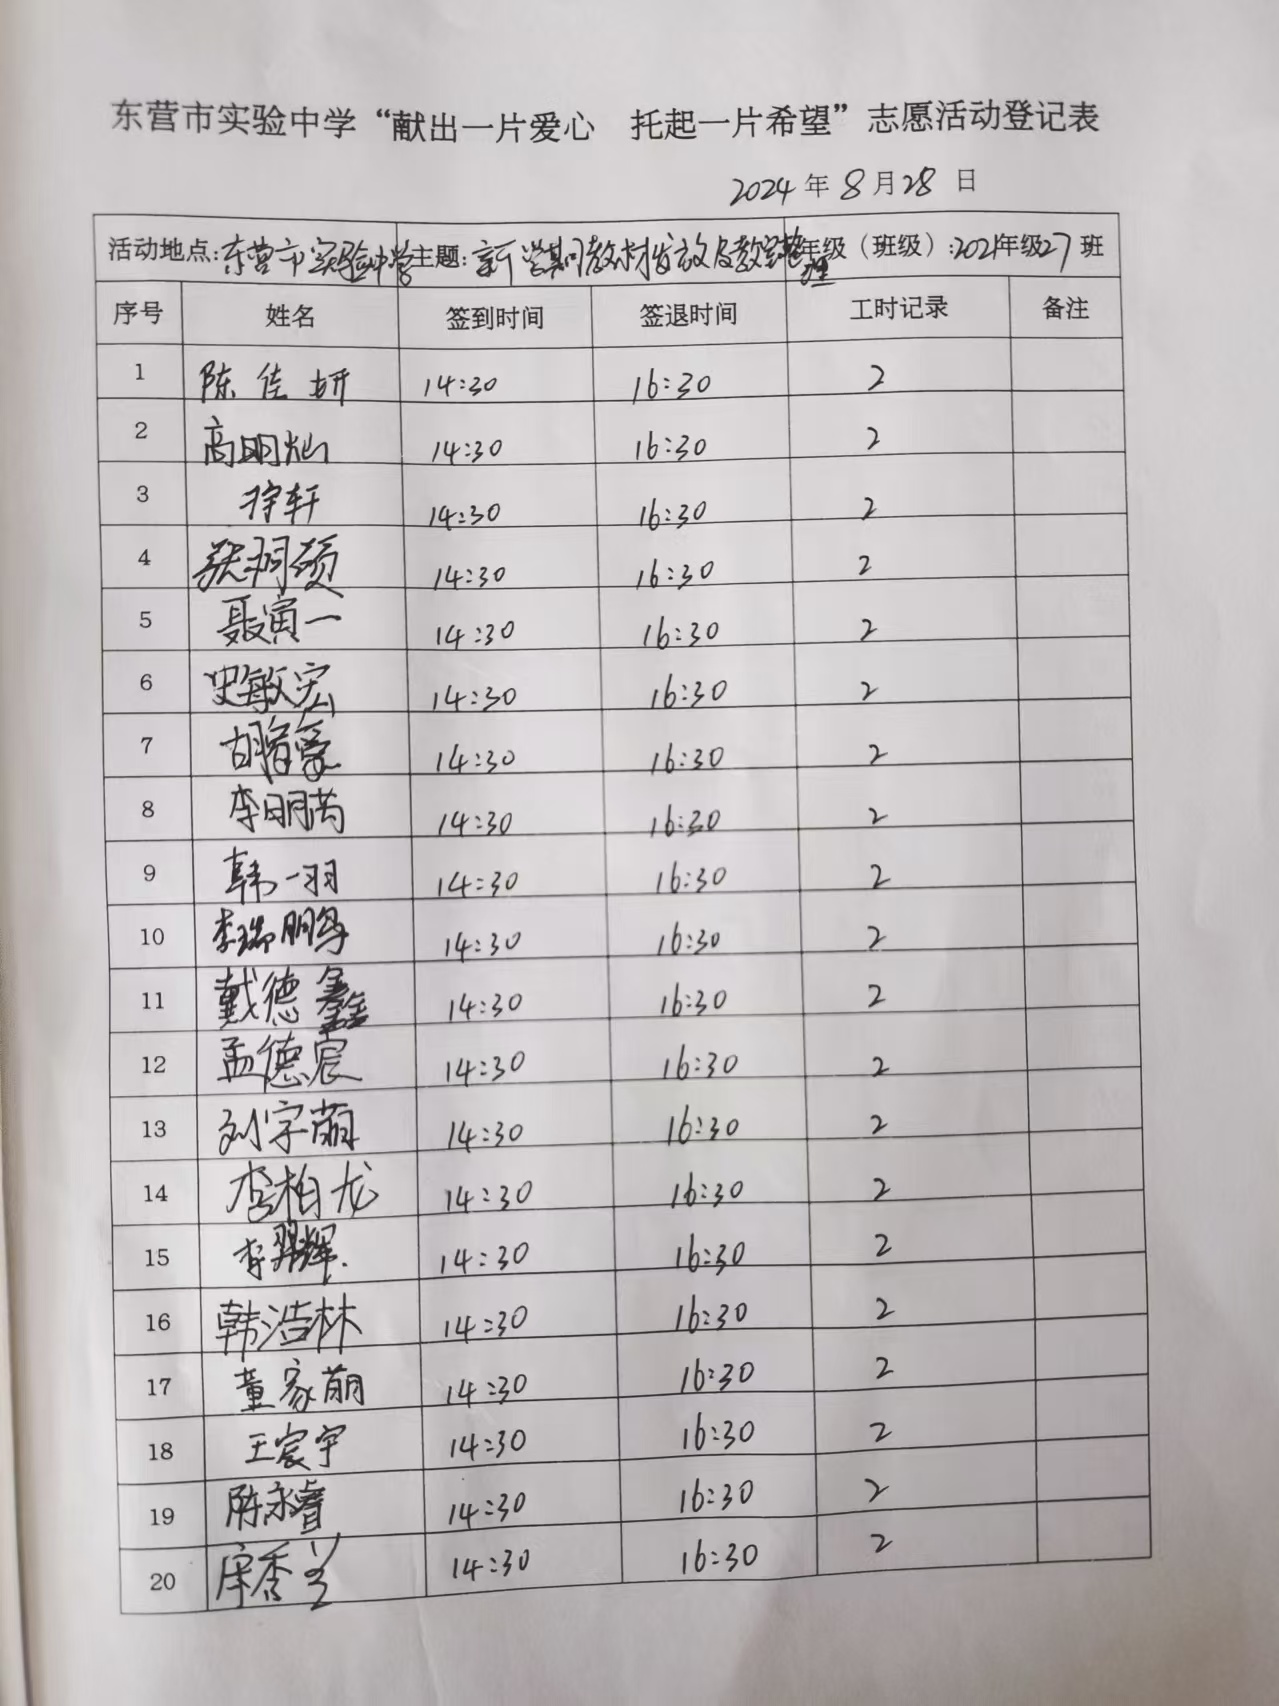 东营市实验中学“献出一片爱心 托起一片希望”志愿活动登记表
2024 年 8 月 28 日
活动地点:东营市实验中学 主题:新学期教材发放及教室整理 年级（班级）:2021年级27班
序号 姓名 签到时间 签退时间 工时记录 备注
1 陈佳妍 14:30 16:30 2
2 高明灿 14:30 16:30 2
3 轩 14:30 16:30 2
4 张硕 14:30 16:30 2
5 聂寅一 14:30 16:30 2
6 史敏宏 14:30 16:30 2
7 胡 14:30 16:30 2
8 李明芮 14:30 16:30 2
9 韩一羽 14:30 16:30 2
10 李瑞鹏 14:30 16:30 2
11 戴德鑫 14:30 16:30 2
12 孟德宸 14:30 16:30 2
13 刘宇萌 14:30 16:30 2
14 李柏龙 14:30 16:30 2
15 李羿辉 14:30 16:30 2
16 韩浩林 14:30 16:30 2
17 董家萌 14:30 16:30 2
18 王宸宇 14:30 16:30 2
19 陈永睿 14:30 16:30 2
20 香兰 14:30 16:30 2